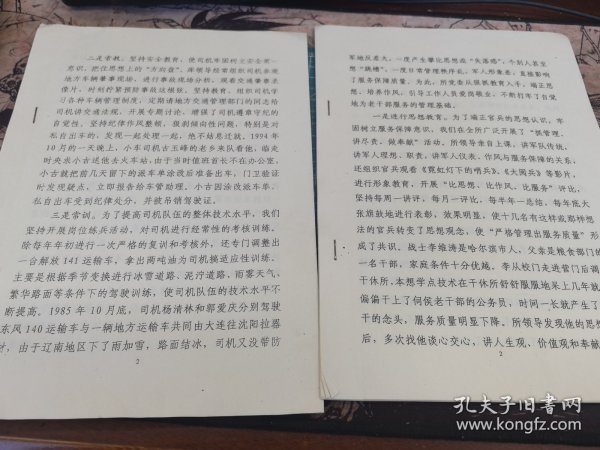 二是常教。坚持安全教育，使司机牢固树立安全第一
意识，把住思想上的“方向盘”。库领导经常组织司机参观
地方车辆肇事现场，进行事故现场分析，观看交通肇事录
像片，时刻拧紧预防事故这根弦。坚持教育，组织司机学
习各种车辆管理制度，定期请地方交通管理部门的同志给
司机讲交通法规，开展专题讨论，增强了司机遵章守纪的
自觉性。坚持纪律作风整顿，狠刹倾向性问题，特别是对
私自出车的，发现一起处理一起，绝不姑息迁就。1994年
10月的一天晚上，小车司机古玉峰的老乡来队看他，临走
时央求小古送他去火车站，由于当时值班首长不在办公室，
小古就把前几天留下的派车单涂改后准备出车，门卫验证
时发现疑点，立即报告给车管助理。小古因涂改派车单、
私自出车受到纪律处分，并被吊销驾驶证。
三是常训。为了提高司机队伍的整体技术水平，我们
坚持开展岗位练兵活动，对司机进行经常性的考核训练。
除每年年初进行一次严格的复训和考核外，还专门调整出
一台解放141运输车，拿出两吨油为司机搞适应性训练。
主要是根据季节变换进行冰雪道路、泥泞道路、雨雾天气、
繁华路面等条件下的驾驶训练，使司机队伍的技术水平不
断提高。1985年10月底，司机杨清林和郭爱庆分别驾驶
东风140运输车与一辆地方运输车共同由大连往沈阳拉器
材，由于辽南地区下了雨加雪，路面结冰，司机又没带防
2
军地反差大，一度产生攀比思想和“失落感”，个别人甚至
想“跳槽”。一度日常管理秩序乱，军人形象差，直接影响
了服务保障质量。为此，所党委从狠抓教育入手，端正思
想，培养作风，引导工作人员爱岗敬业，不断打牢了自觉
地为老干部服务的管理基础。
一是进行思想教育。为了端正官兵的思想认识，牢
固树立服务保障意识，我们在全所广泛开展了“抓管理、
讲尽责，做奉献”活动。所领导亲自上课，讲军队传统，
讲军人理想、职责，讲军人仪表、作风与服务保障的关系，
还组织官兵观看《霓虹灯下的哨兵》、《大阅兵》等影片，
进行形象教育，开展“比思想、比作风、比服务”评比，
坚持每周一讲评，每月一评比，每半年一总结，每年底大
张旗鼓地进行表彰，效果明显，使十几名有这样或那样想
法的官兵转变了思想观念，使“严格管理出服务质量”形
成了共识。战士李维涛是哈尔滨市人，父亲是粮食部门的
一名干部，家庭条件十分优越。李从校门走进营门后调
干休所，本想学点技术在干休所舒舒服服地呆上几年就
偏偏干上了伺侯老干部的公务员，时间一长就产生了
干的念头，服务质量明显下降。所领导发现他的思想
后，多次找他谈心交心，讲人生观、价值观和奉献
2
孔夫子旧书网
www.kongfz.com